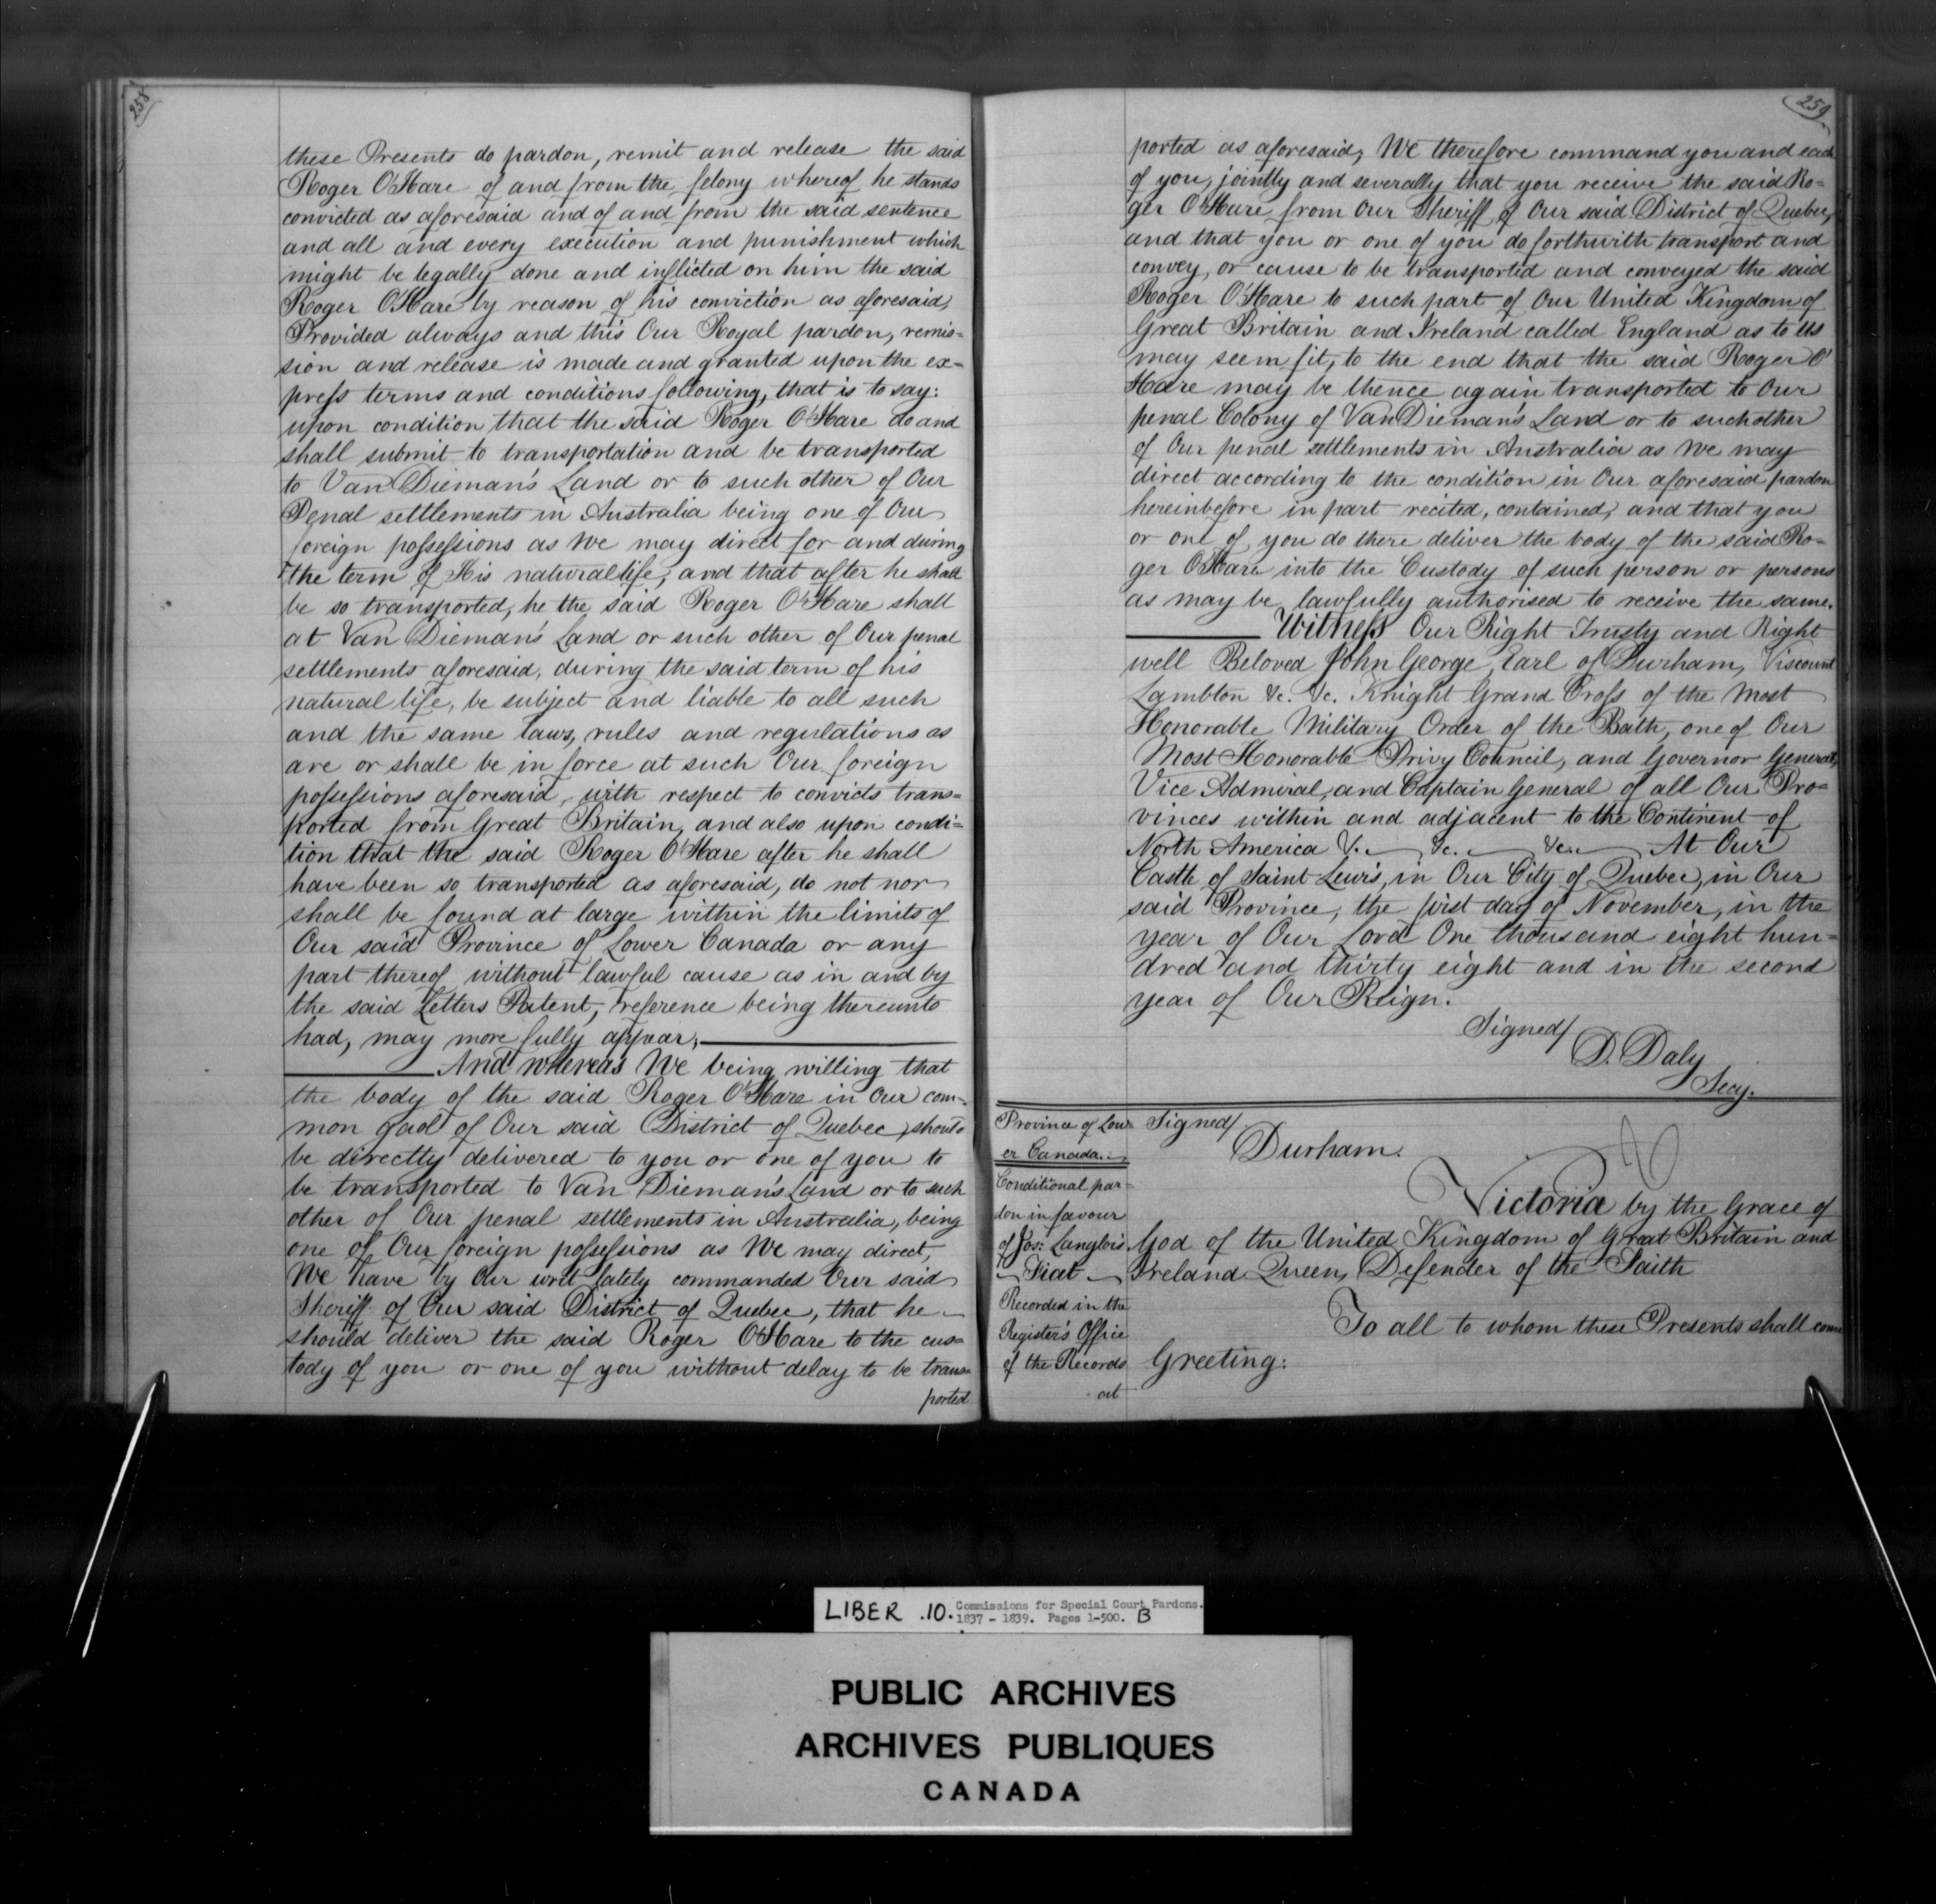 258
these Presents do pardon, remit and release the said
Roger O'Hare of and from the felony whereof he stands
convicted as aforesaid and of and from the said sentence
and all and every execution and punishment which
might be legally done and inflicted on him the said
Roger O'Hare by reason of his conviction as aforesaid,
Provided always and this Our Royal pardon, remis=
sion and release is made and granted upon the ex=
press terms and conditions following, that is to say:
upon condition that the said Roger O'Hare do and
shall submit to transportation and be transported
to Van Dieman's Land or to such other of Our
Penal settlements in Australia being one of Our
foreign possessions as We may direct for and during
the term of His natural life, and that after he shall
be so transported, he the said Roger O'Hare shall
at Van Dieman's Land or such other of Our penal
settlements aforesaid, during the said term of his
natural life, be subject and liable to all such
and the same laws, rules and regulations as
are or shall be in force at such Our foreign
possessions aforesaid, with respect to convicts trans=
ported from Great Britain, and also upon condi=
tion that the said Roger O'Hare after he shall
have been so transported as aforesaid, do not nor
shall be found at large within the limits of
Our said Province of Lower Canada or any
part thereof without lawful cause as in and by
the said Letters Patent, reference being thereunto
had, may more fully appear,
And whereas We being willing that
the body of the said Roger O'Hare in Our com=
mon gaol of Our said District of Quebec, should
be directly delivered to you or one of you to
be transported to Van Dieman's Land or to such
other of Our penal settlements in Australia, being
one of Our foreign possessions as We may direct,
We have by Our writ lately commanded Our said
Sheriff of Our said District of Quebec, that he
should deliver the said Roger O'Hare to the cus=
tody of you or one of you without delay to be trans=
ported
259
ported as aforesaid, We therefore command you and each
of you, jointly and severally that you receive the said Ro=
ger O'Hare from Our Sheriff of Our said District of Quebec,
and that you or one of you do forthwith transport and
convey, or cause to be transported and conveyed the said
Roger O'Hare to such part of Our United Kingdom of
Great Britain and Ireland called England as to Us
may seem fit, to the end that the said Roger O'
Hare may be thence again transported to Our
penal Colony of Van Dieman's Land or to such other
of Our penal settlements in Australia as We may
direct according to the condition in Our aforesaid pardon
hereinbefore in part recited, contained, and that you
or one of you do there deliver the body of the said Ro=
ger O'Hare into the Custody of such person or persons
as may be lawfully authorised to receive the same.
Witness Our Right Trusty and Right
well Beloved John George, Earl of Durham, Viscount
Lambton &c. &c. Knight Grand Cross of the Most
Honorable Military Order of the Bath, one of Our
Most Honorable Privy Council, and Governor General,
Vice Admiral, and Captain General of all Our Pro=
vinces within and adjacent to the Continent of
North America &. &c. &c. At Our
Castle of Saint Lewis, in Our City of Quebec, in Our
said Province, the first day of November, in the
year of Our Lord One thousand eight hun=
dred and thirty eight and in the second
year of Our Reign.
Signed/
D. Daly
Secy.
Province of Low
er Canada.
Conditional par=
don in favour
of Jos: Langlois
Fiat
Recorded in the
Register's Office
of the Records
at
Signed/
Durham.
Victoria by the Grace of
God of the United Kingdom of Great Britain and
Ireland Queen, Defender of the Faith
To all to whom these Presents shall come
Greeting:
LIBER .10. Commissions for Special Court Pardons.
1837 - 1839. Pages 1-500. B
PUBLIC ARCHIVES
ARCHIVES PUBLIQUES
CANADA